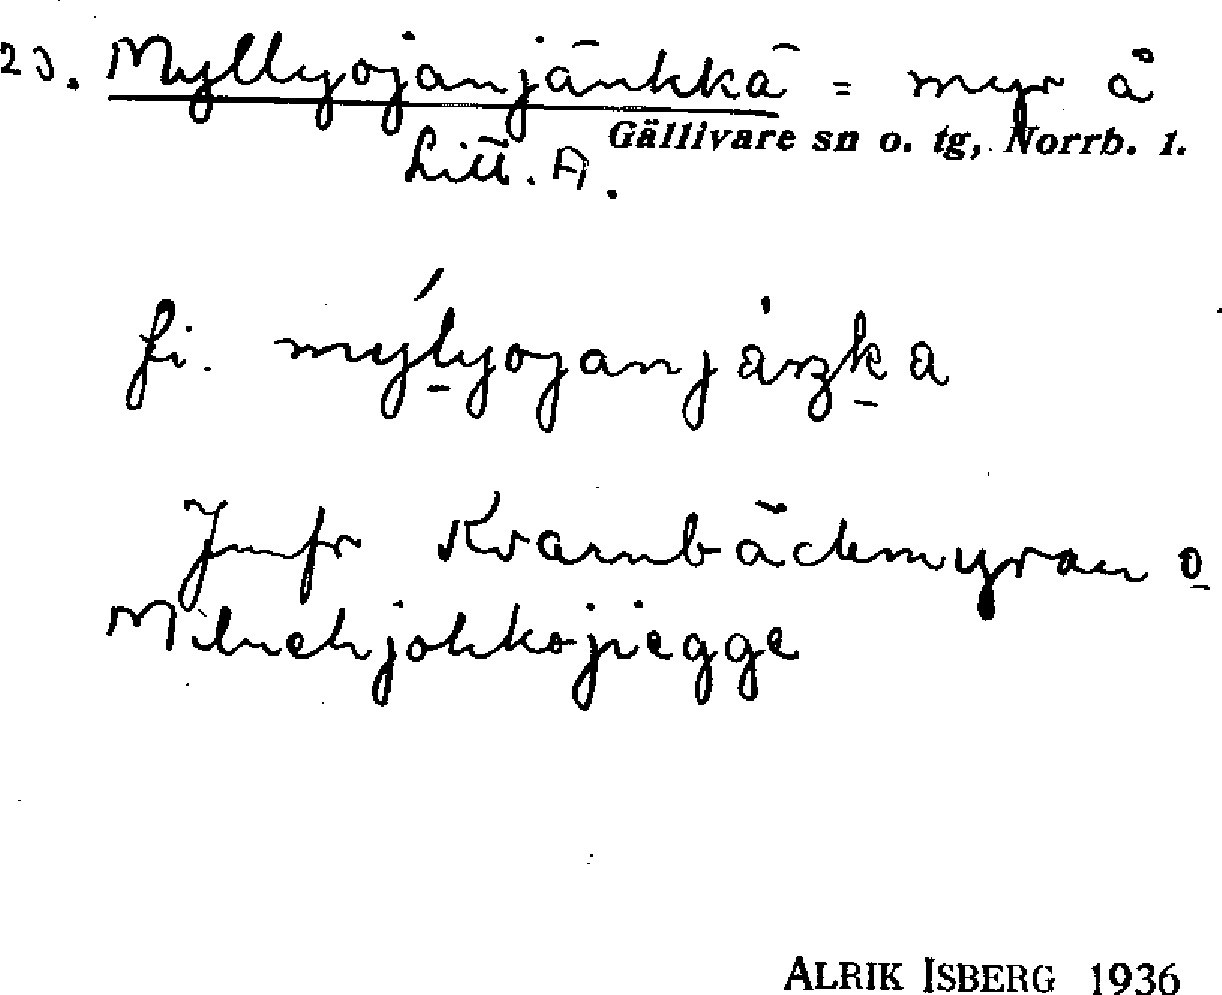 23. Myllyojanjänkkä = myr å
Gällivare sn o. tg, Norrb. l.
Litt. A.
fi. mýlyojanjáŋka
Jmfr Kvarnbäckmyran o
Milnekjokkojiegge
ALRIK ISBERG 1936